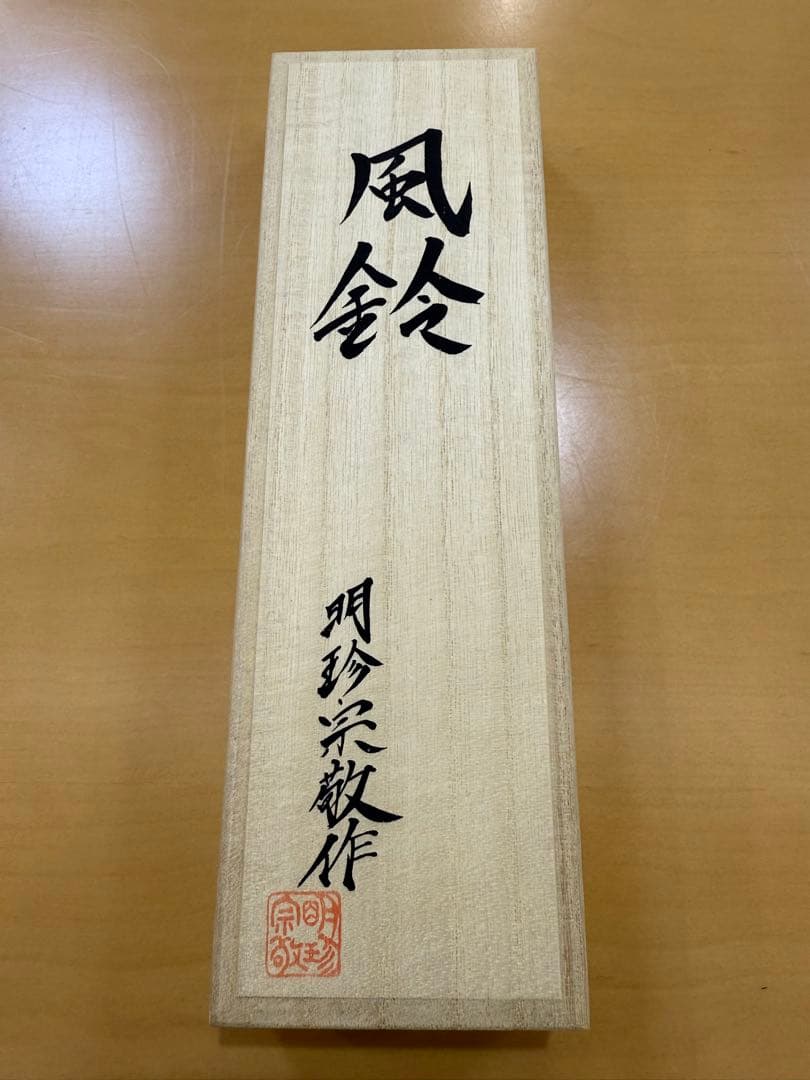 風鈴
明珍宗敬作
明珍
宗敬